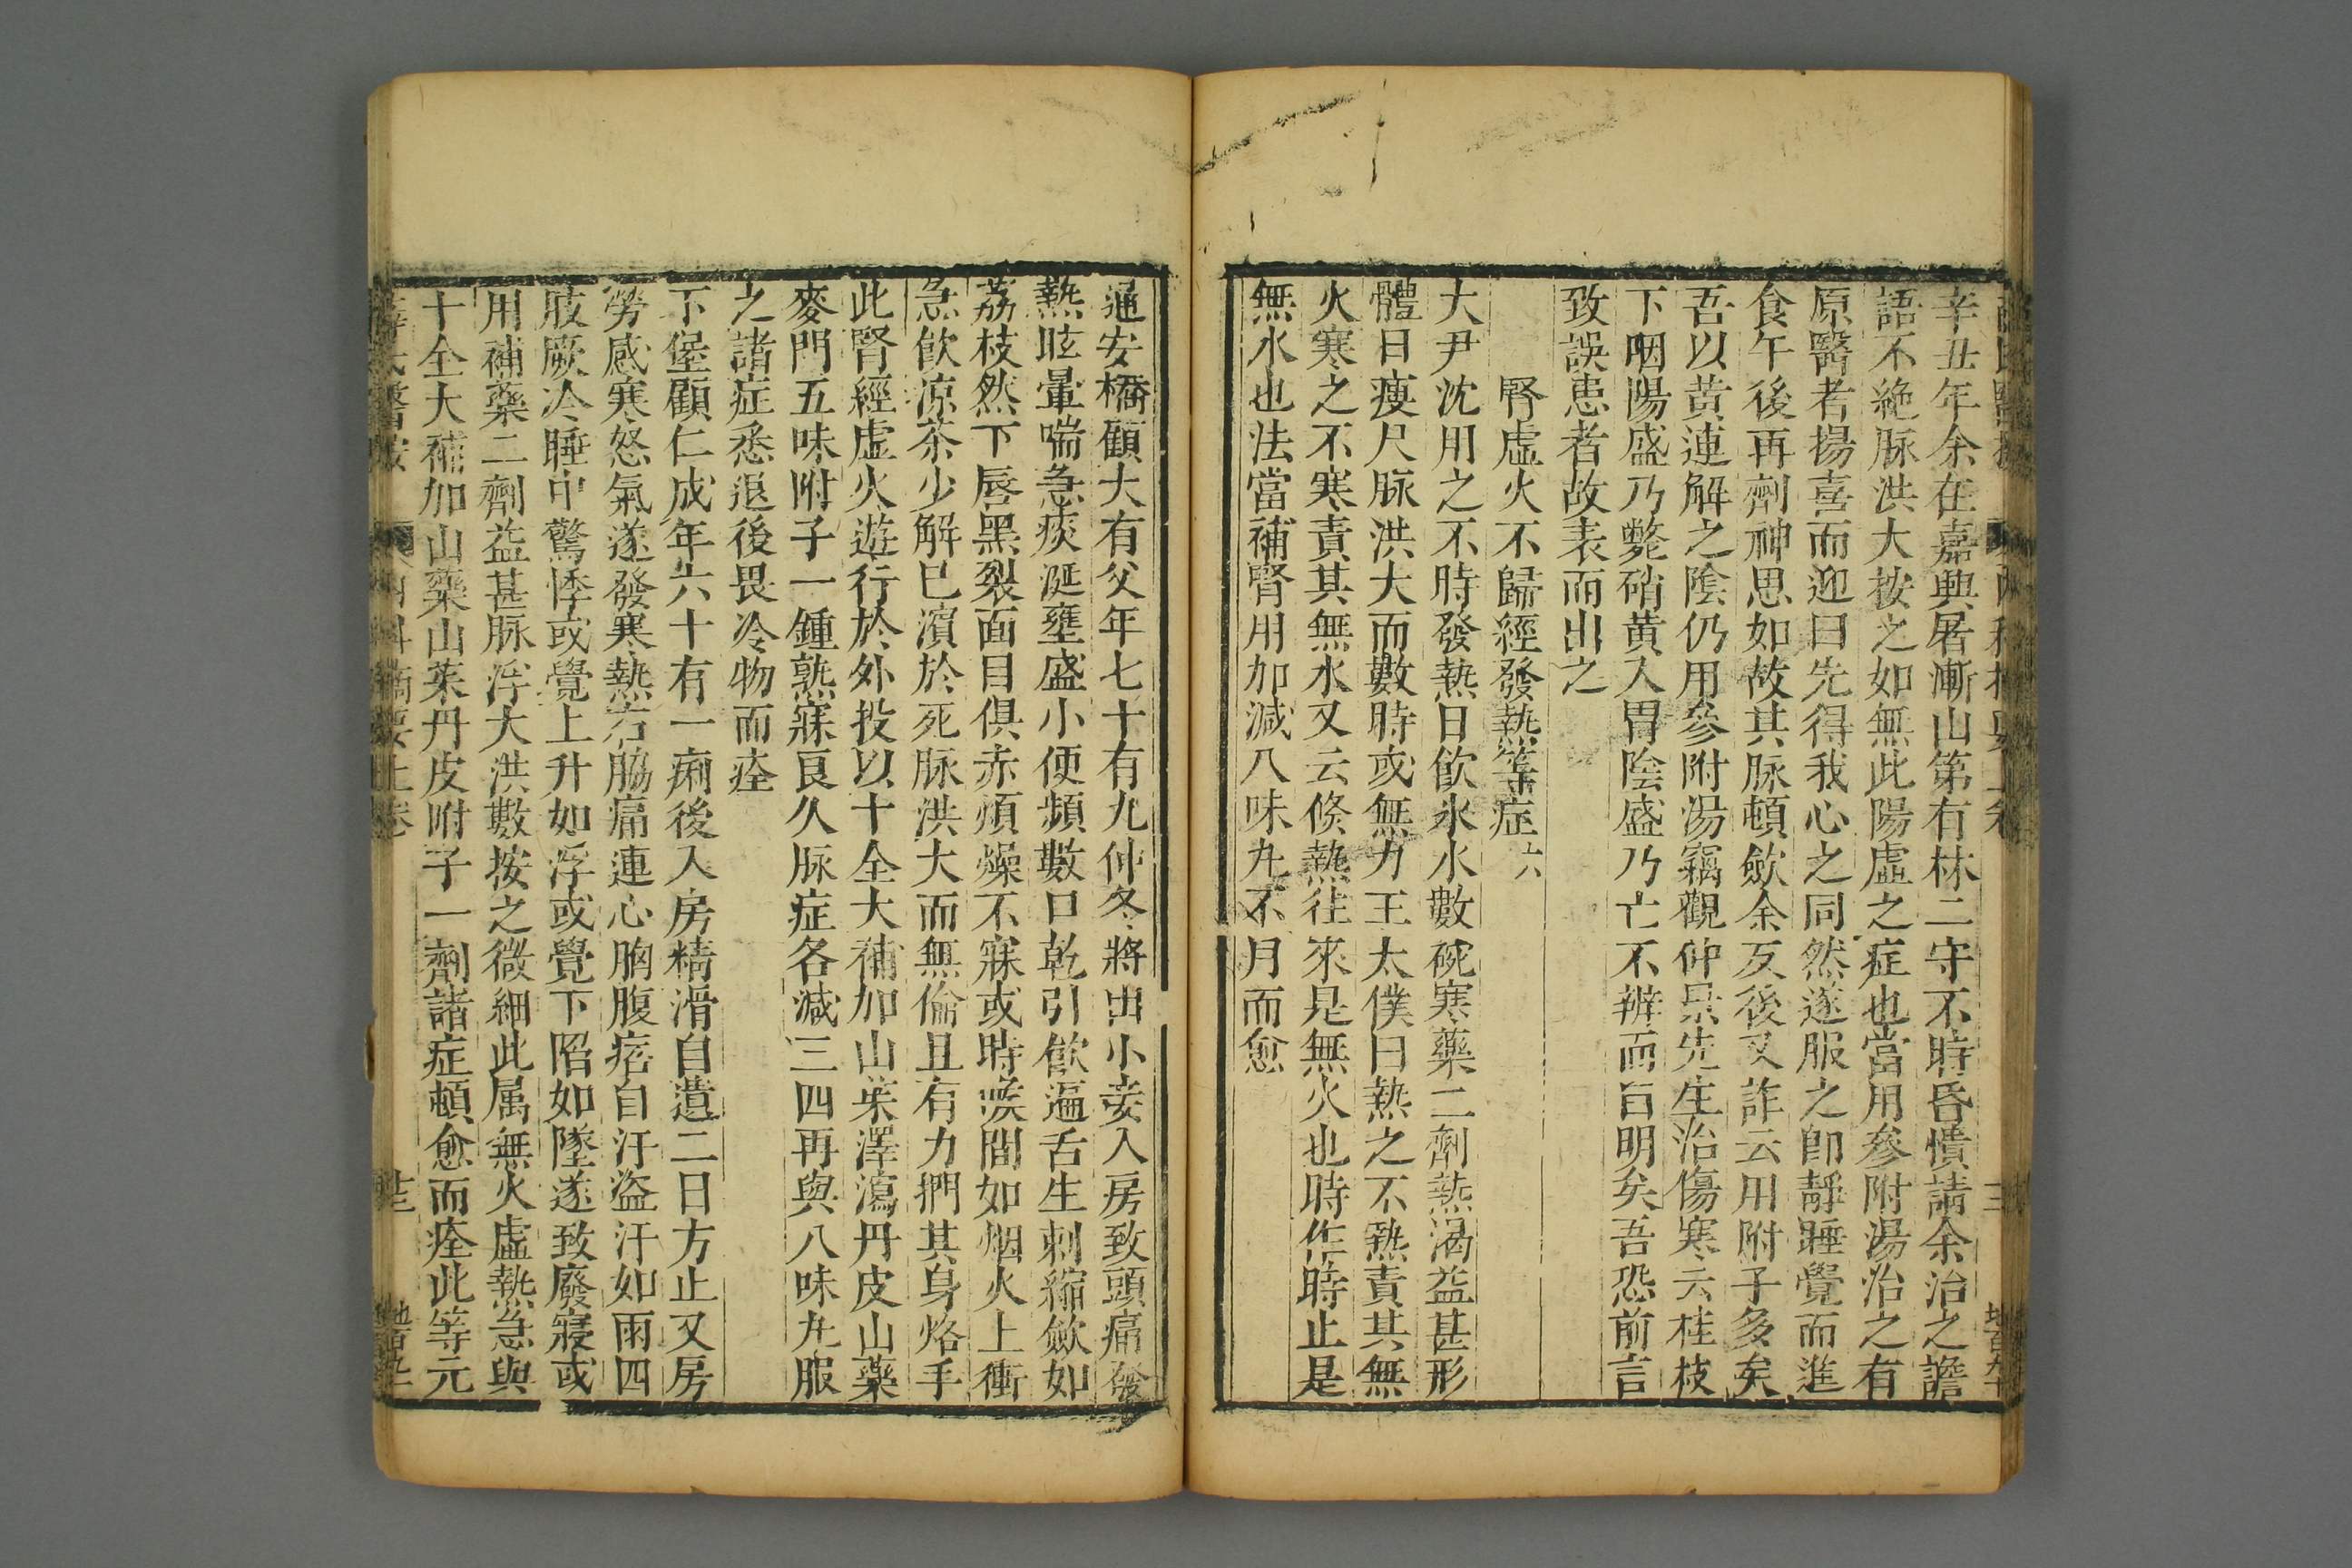 辛丑年余在嘉興屠漸山第有林二守不時昏憒請余治之譫
語不絶脉洪大按之如無此陽虛之症也當用參附湯治之有
原醫者揚喜而迎曰先得我心之同然遂服之卽靜睡覺而進
食午後再劑神思如故其脉頓歛余友後又詐云用附子多矣
吾以黄連解之陰仍用參附湯竊觀仲景先生治傷寒云桂枝
下咽陽盛乃斃硝黄入胃陰盛乃亡不辨而自明矣吾恐前言
致誤患者故表而出之
腎虛火不歸經發熱等症六
大尹沈用之不時發熱日飲氷水數碗寒藥二劑熱渴益甚形
體日瘦尺脉洪大而數時或無力王太僕曰熱之不熱責其無
火寒之不寒責其無水又云倐熱往來是無火也時作時止是
無水也法當補腎用加減八味丸不月而愈
通安橋顧大有父年七十有九仲冬將出小妾入房致頭痛發
熱眩暈喘急痰涎壅盛小便頻數口乾引飲遍舌生刺縮歛如
荔枝然下唇黑裂面目俱赤煩燥不寐或時喉間如烟火上衝
急飲凉茶少解已濱於死脉洪大而無倫且有力捫其身烙手
此腎經虛火遊行於外投以十全大補加山茱澤瀉丹皮山藥
麥門五味附子一鍾熟寐良久脉症各減三四再與八味丸服
之諸症悉退後畏冷物而痊
下堡顧仁成年六十有一痢後入房精滑自遺二日方止又房
勞感寒怒氣遂發寒熱右脇痛連心胸腹痞自汗盜汗如雨四
肢厥冷睡中驚悸或覺上升如浮或覺下陷如墜遂致廢寢或
用補藥二劑益甚脉浮大洪數按之微細此属無火虛熱急與
十全大補加山藥山茱丹皮附子一劑諸症頓愈而痊此等元